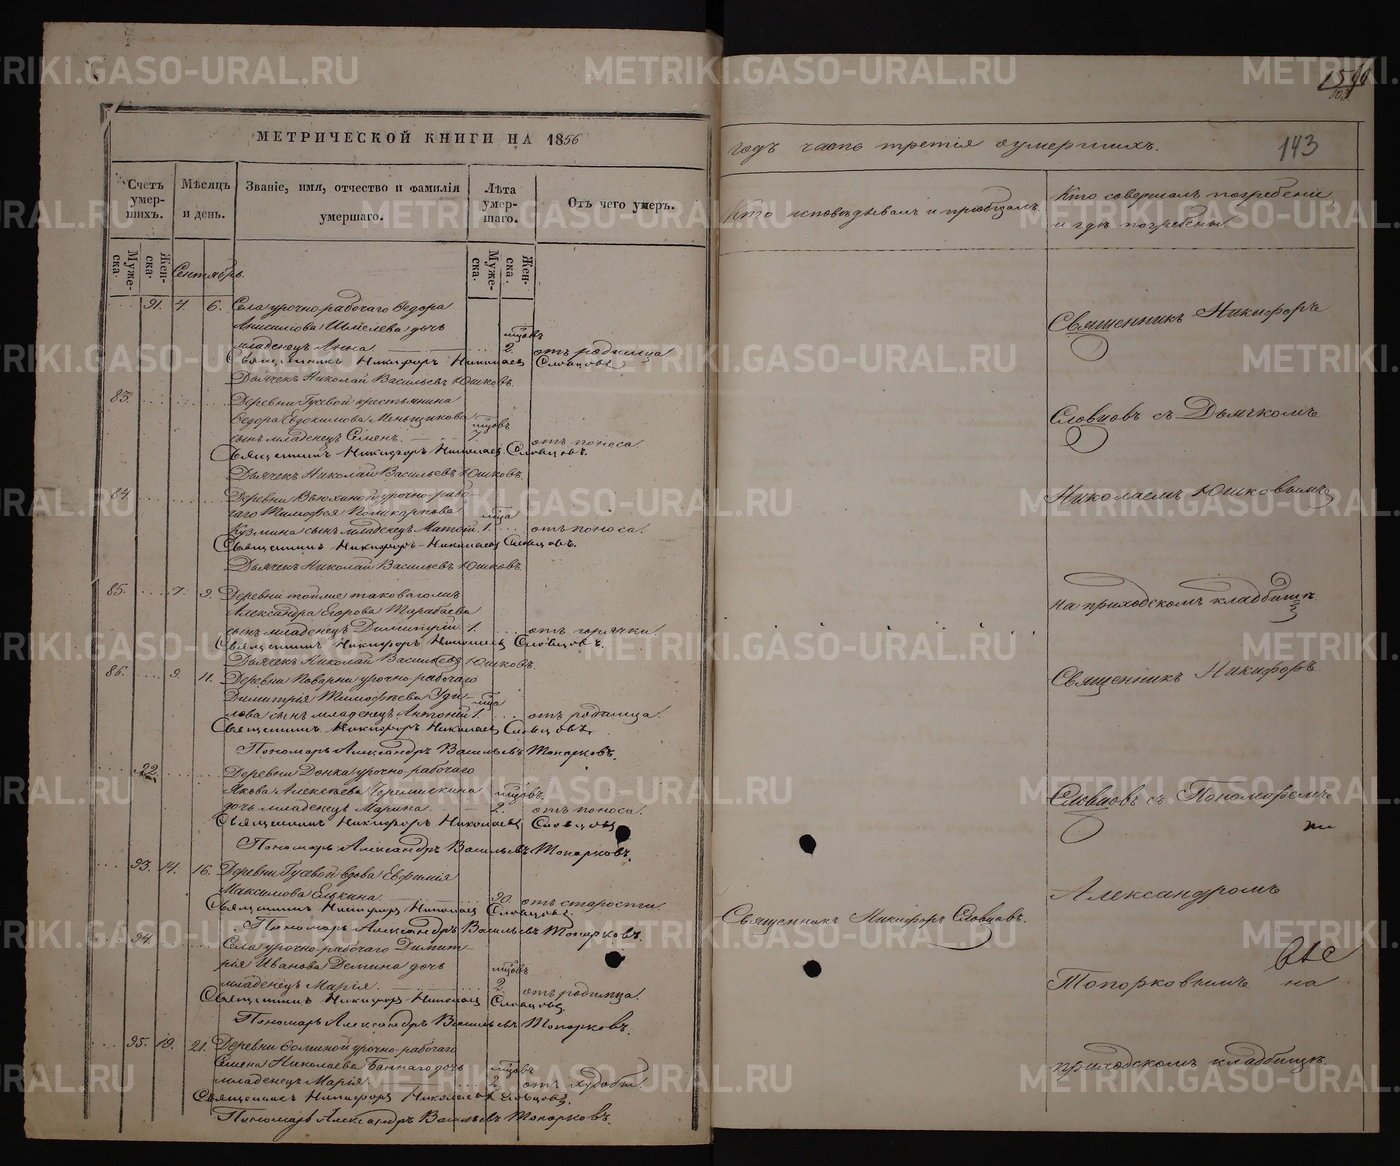 МЕТРИЧЕСКОЙ КНИГИ НА 1856
Счетъ умер-шихъ.
Мѣсяцъ и день.
Званіе, имя, отчество и фамилія умершаго.
Лѣта умер-шаго.
Отъ чего умеръ.
Муже-ска.
Жен-ска.
Муже-ска.
Жен-ска.
Сентябрь.
91. 4. 6. Села урочно рабочаго Ѳедора
Анисимова дочь
младенецъ Анна 2. мцовъ отъ родимца
Священникъ Никифоръ Николаевъ Словцовъ
Дьячекъ Николай Васильевъ Юшковъ.
83. Деревни Гусевой крестьянина
Ѳедора Евдокимова Меньщикова
сынъ младенецъ Семенъ. мцовъ отъ поноса.
Священникъ Никифоръ Николаевъ Словцовъ.
Дьячекъ Николай Васильевъ Юшковъ.
84. Деревни Вьюхиной урочно-рабо-
чаго Тимофея Поликарпова
Кузмина сынъ младенецъ 1. мца отъ поноса.
Священникъ Никифоръ Николаевъ Словцовъ.
Дьячекъ Николай Васильевъ Юшковъ.
85. 7. 9. Деревни тойже таковаго
Александра Егорова Тарабаева
сынъ младенецъ Димитрій 1. отъ горячки.
Священникъ Никифоръ Николаевъ Словцовъ.
Дьячекъ Николай Васильевъ Юшковъ.
86. 9. 11. Деревни Поварни урочно рабочаго
Димитрія Тимофѣева Уди-
лова сынъ младенецъ Антоній 1. мца отъ родимца.
Священникъ Никифоръ Николаевъ Словцовъ.
Пономарь Александръ Васильевъ Топорковъ.
92. Деревни урочно рабочаго
Якова Алексѣева Черемискина
дочь младенецъ Марина 2. мцовъ. отъ поноса.
Священникъ Никифоръ Николаевъ Словцовъ
Пономарь Александръ Васильевъ Топорковъ.
93. 14. 16. Деревни Гусевой вдова Евфимія
Максимова Елькина 90 отъ старости.
Священникъ Никифоръ Николаевъ Словцовъ.
Пономарь Александръ Васильевъ Топорковъ.
94. Села урочно рабочаго Димит-
рія Иванова Демина дочь
младенецъ Марія. 2. мцовъ отъ родимца.
Священникъ Никифоръ Николаевъ Словцовъ
Пономарь Александръ Васильевъ Топорковъ.
95. 19. 21. Деревни урочно-рабочаго
Семена Николаева дочь
младенецъ Марія 2. мцовъ отъ худобы.
Священникъ Никифоръ Николаевъ Словцовъ.
Пономарь Александръ Васильевъ Топорковъ.
103
143
годъ часть третія о умершихъ.
Кто исповѣдывалъ и пріобщалъ.
Кто совершалъ погребеніе,
и гдѣ погребены.
Священникъ Никифоръ
Словцовъ съ Дьячкомъ
Николаемъ Юшковымъ
на приходскомъ кладбищѣ
Священникъ Никифоръ
Словцовъ съ Пономаремъ
Александромъ
Священникъ Никифоръ Словцовъ.
Топорковымъ на
приходскомъ кладбищѣ.
METRIKI.GASO-URAL.RU